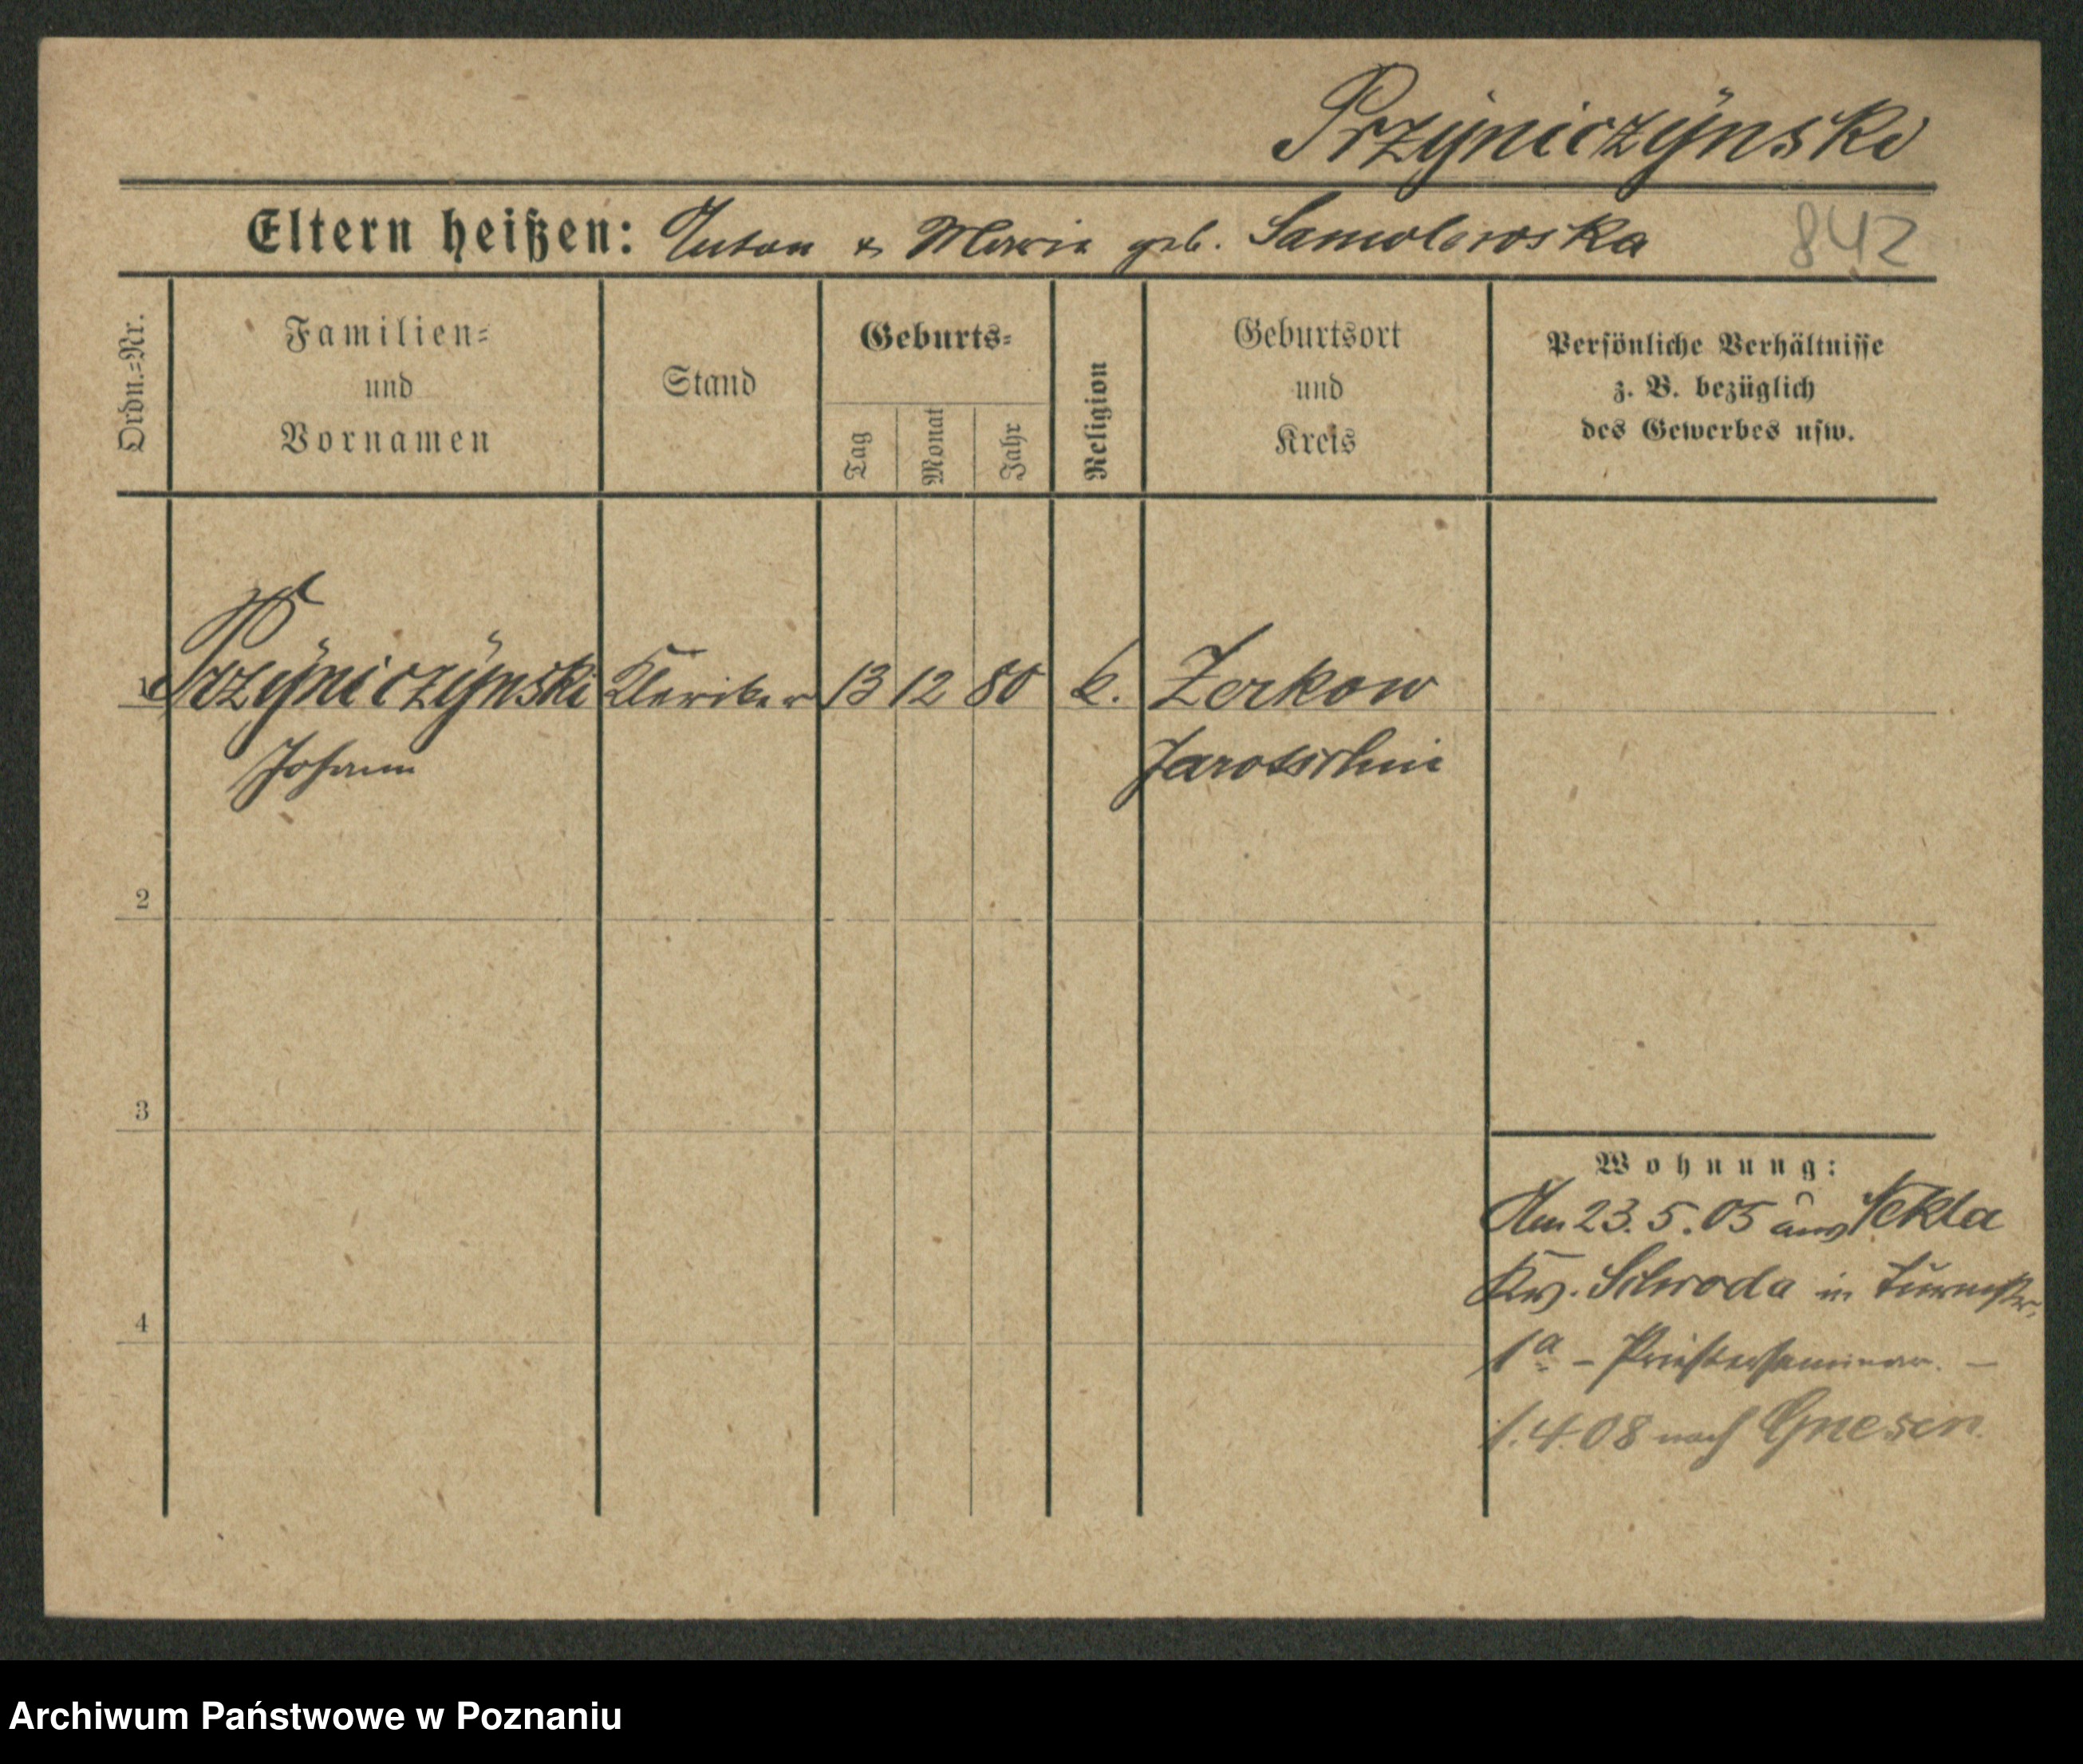 Przÿniczÿnski
Eltern heißen: Anton & Maria geb. Samolewska
842
Ordn.-Nr.
Familien-
und
Vornamen
Stand
Geburts-
Tag
Monat
Jahr
Religion
Geburtsort
und
Kreis
Persönliche Verhältnisse
z. B. bezüglich
des Gewerbes usw.
1 Przÿniczÿnski Kleriker 13 12 80 k. Zerkow
Johann Jarotschin
2
3
4
Wohnung:
Am 23.5.05 aus Nekla
Krs. Schroda in Turmstr.
1a - Priesterseminar. -
1.4.08 nach Gnesen.
Archiwum Państwowe w Poznaniu